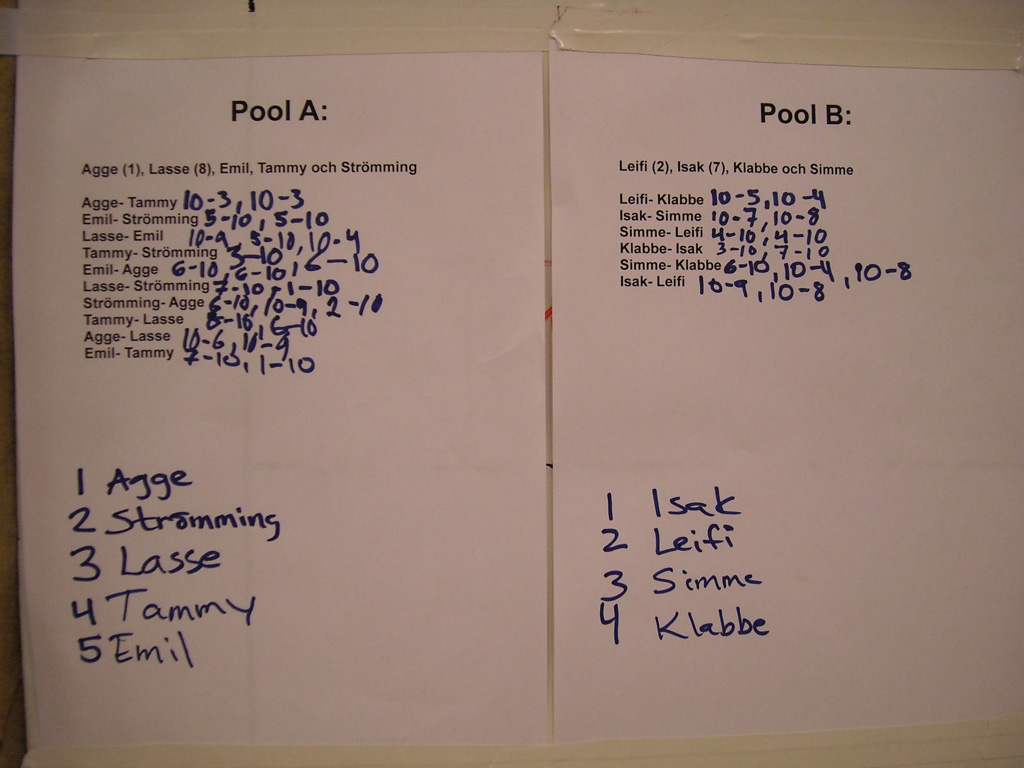 Pool A:
Agge (1), Lasse (8), Emil, Tammy och Strömming
Agge- Tammy 10-3, 10-3
Emil- Strömming 5-10, 5-10
Lasse- Emil 10-9, 5-10, 10-4
Tammy- Strömming 3-10,
Emil- Agge 6-10, 6-10, 6-10
Lasse- Strömming 7-10, 1-10
Strömming- Agge 6-10, 10-9, 2-10
Tammy- Lasse 8-10, 6-10
Agge- Lasse 10-6, 10-9
Emil- Tammy 7-10, 1-10
1 Agge
2 Strömming
3 Lasse
4 Tammy
5 Emil
Pool B:
Leifi (2), Isak (7), Klabbe och Simme
Leifi- Klabbe 10-5, 10-4
Isak- Simme 10-7, 10-8
Simme- Leifi 4-10, 4-10
Klabbe- Isak 3-10, 7-10
Simme- Klabbe 6-10, 10-4, 10-8
Isak- Leifi 10-9, 10-8
1 Isak
2 Leifi
3 Simme
4 Klabbe